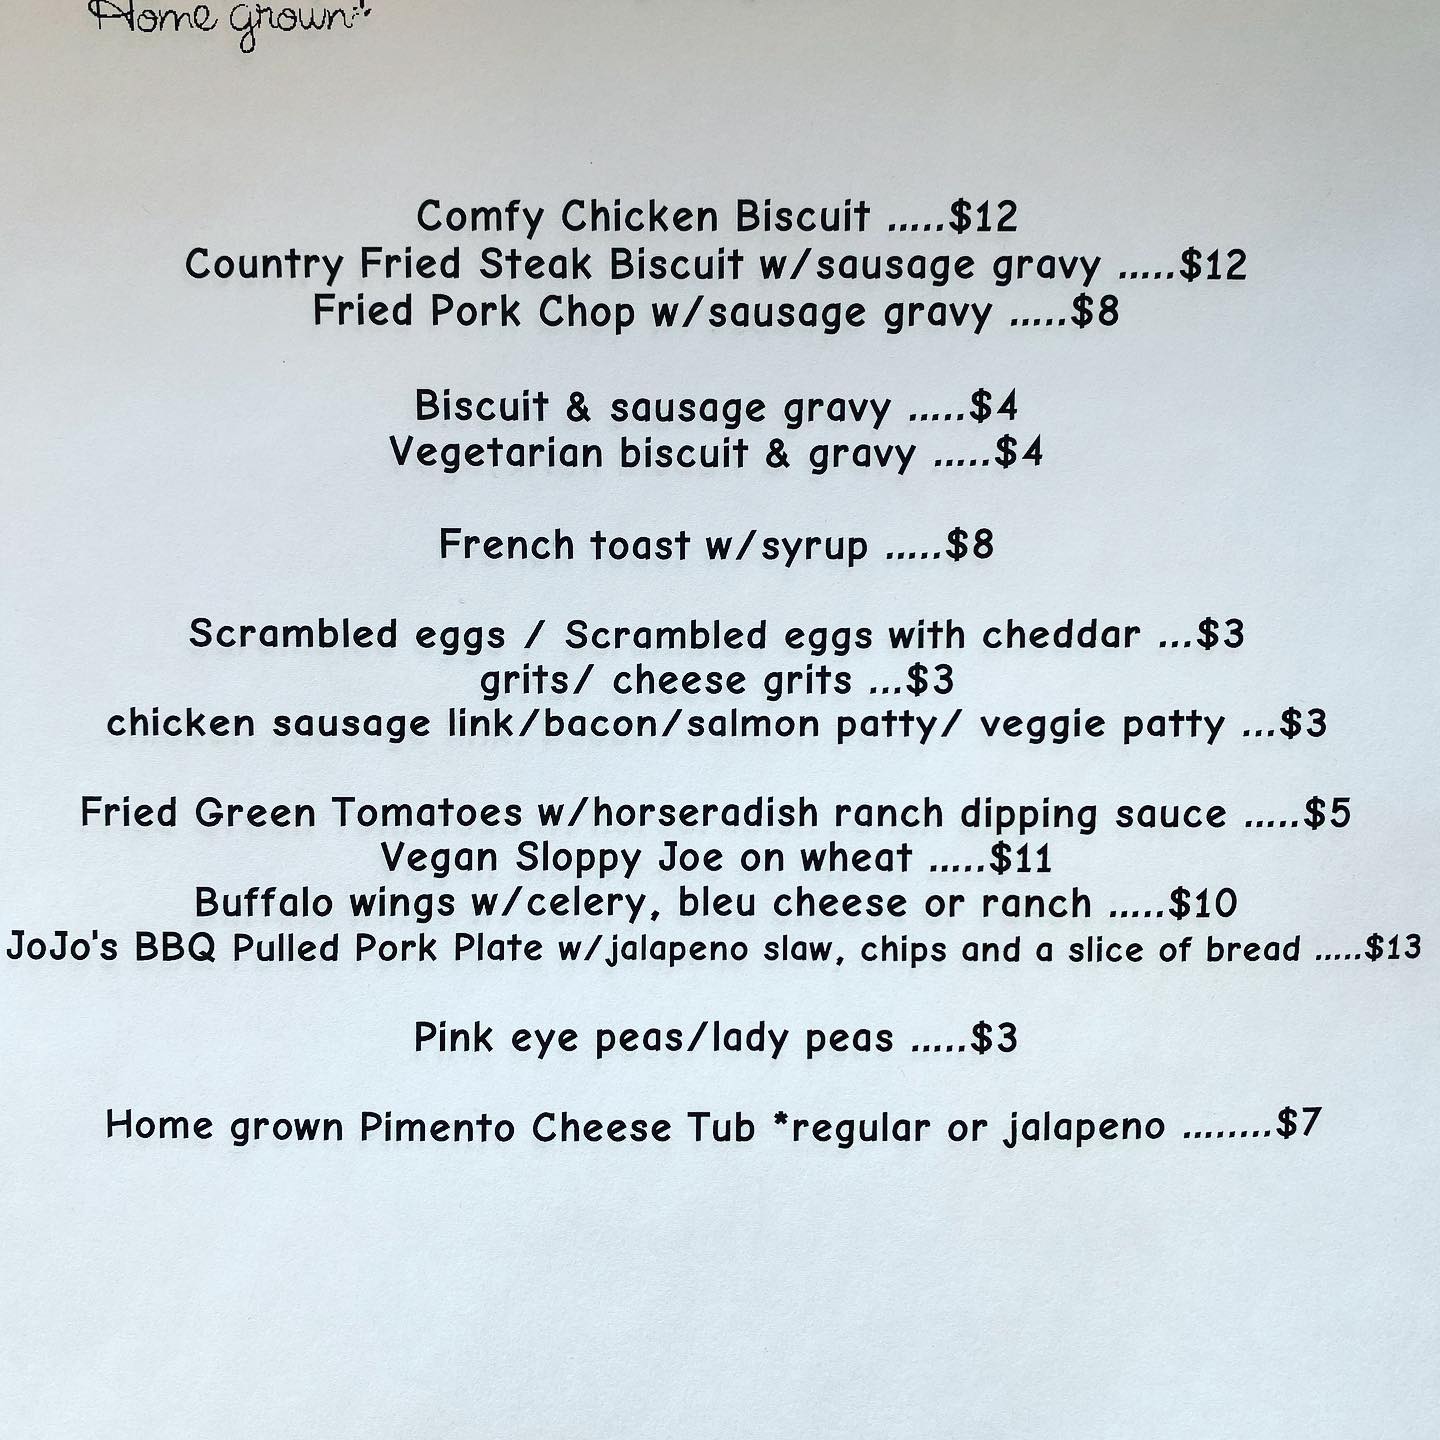 Home grown
Comfy Chicken Biscuit .....$12
Country Fried Steak Biscuit w/sausage gravy .....$12
Fried Pork Chop w/sausage gravy .....$8
Biscuit & sausage gravy .....$4
Vegetarian biscuit & gravy .....$4
French toast w/syrup .....$8
Scrambled eggs / Scrambled eggs with cheddar ...$3
grits/ cheese grits ...$3
chicken sausage link/bacon/salmon patty/ veggie patty ...$3
Fried Green Tomatoes w/horseradish ranch dipping sauce .....$5
Vegan Sloppy Joe on wheat .....$11
Buffalo wings w/celery, bleu cheese or ranch .....$10
JoJo's BBQ Pulled Pork Plate w/jalapeno slaw, chips and a slice of bread .....$13
Pink eye peas/lady peas .....$3
Home grown Pimento Cheese Tub *regular or jalapeno ........$7